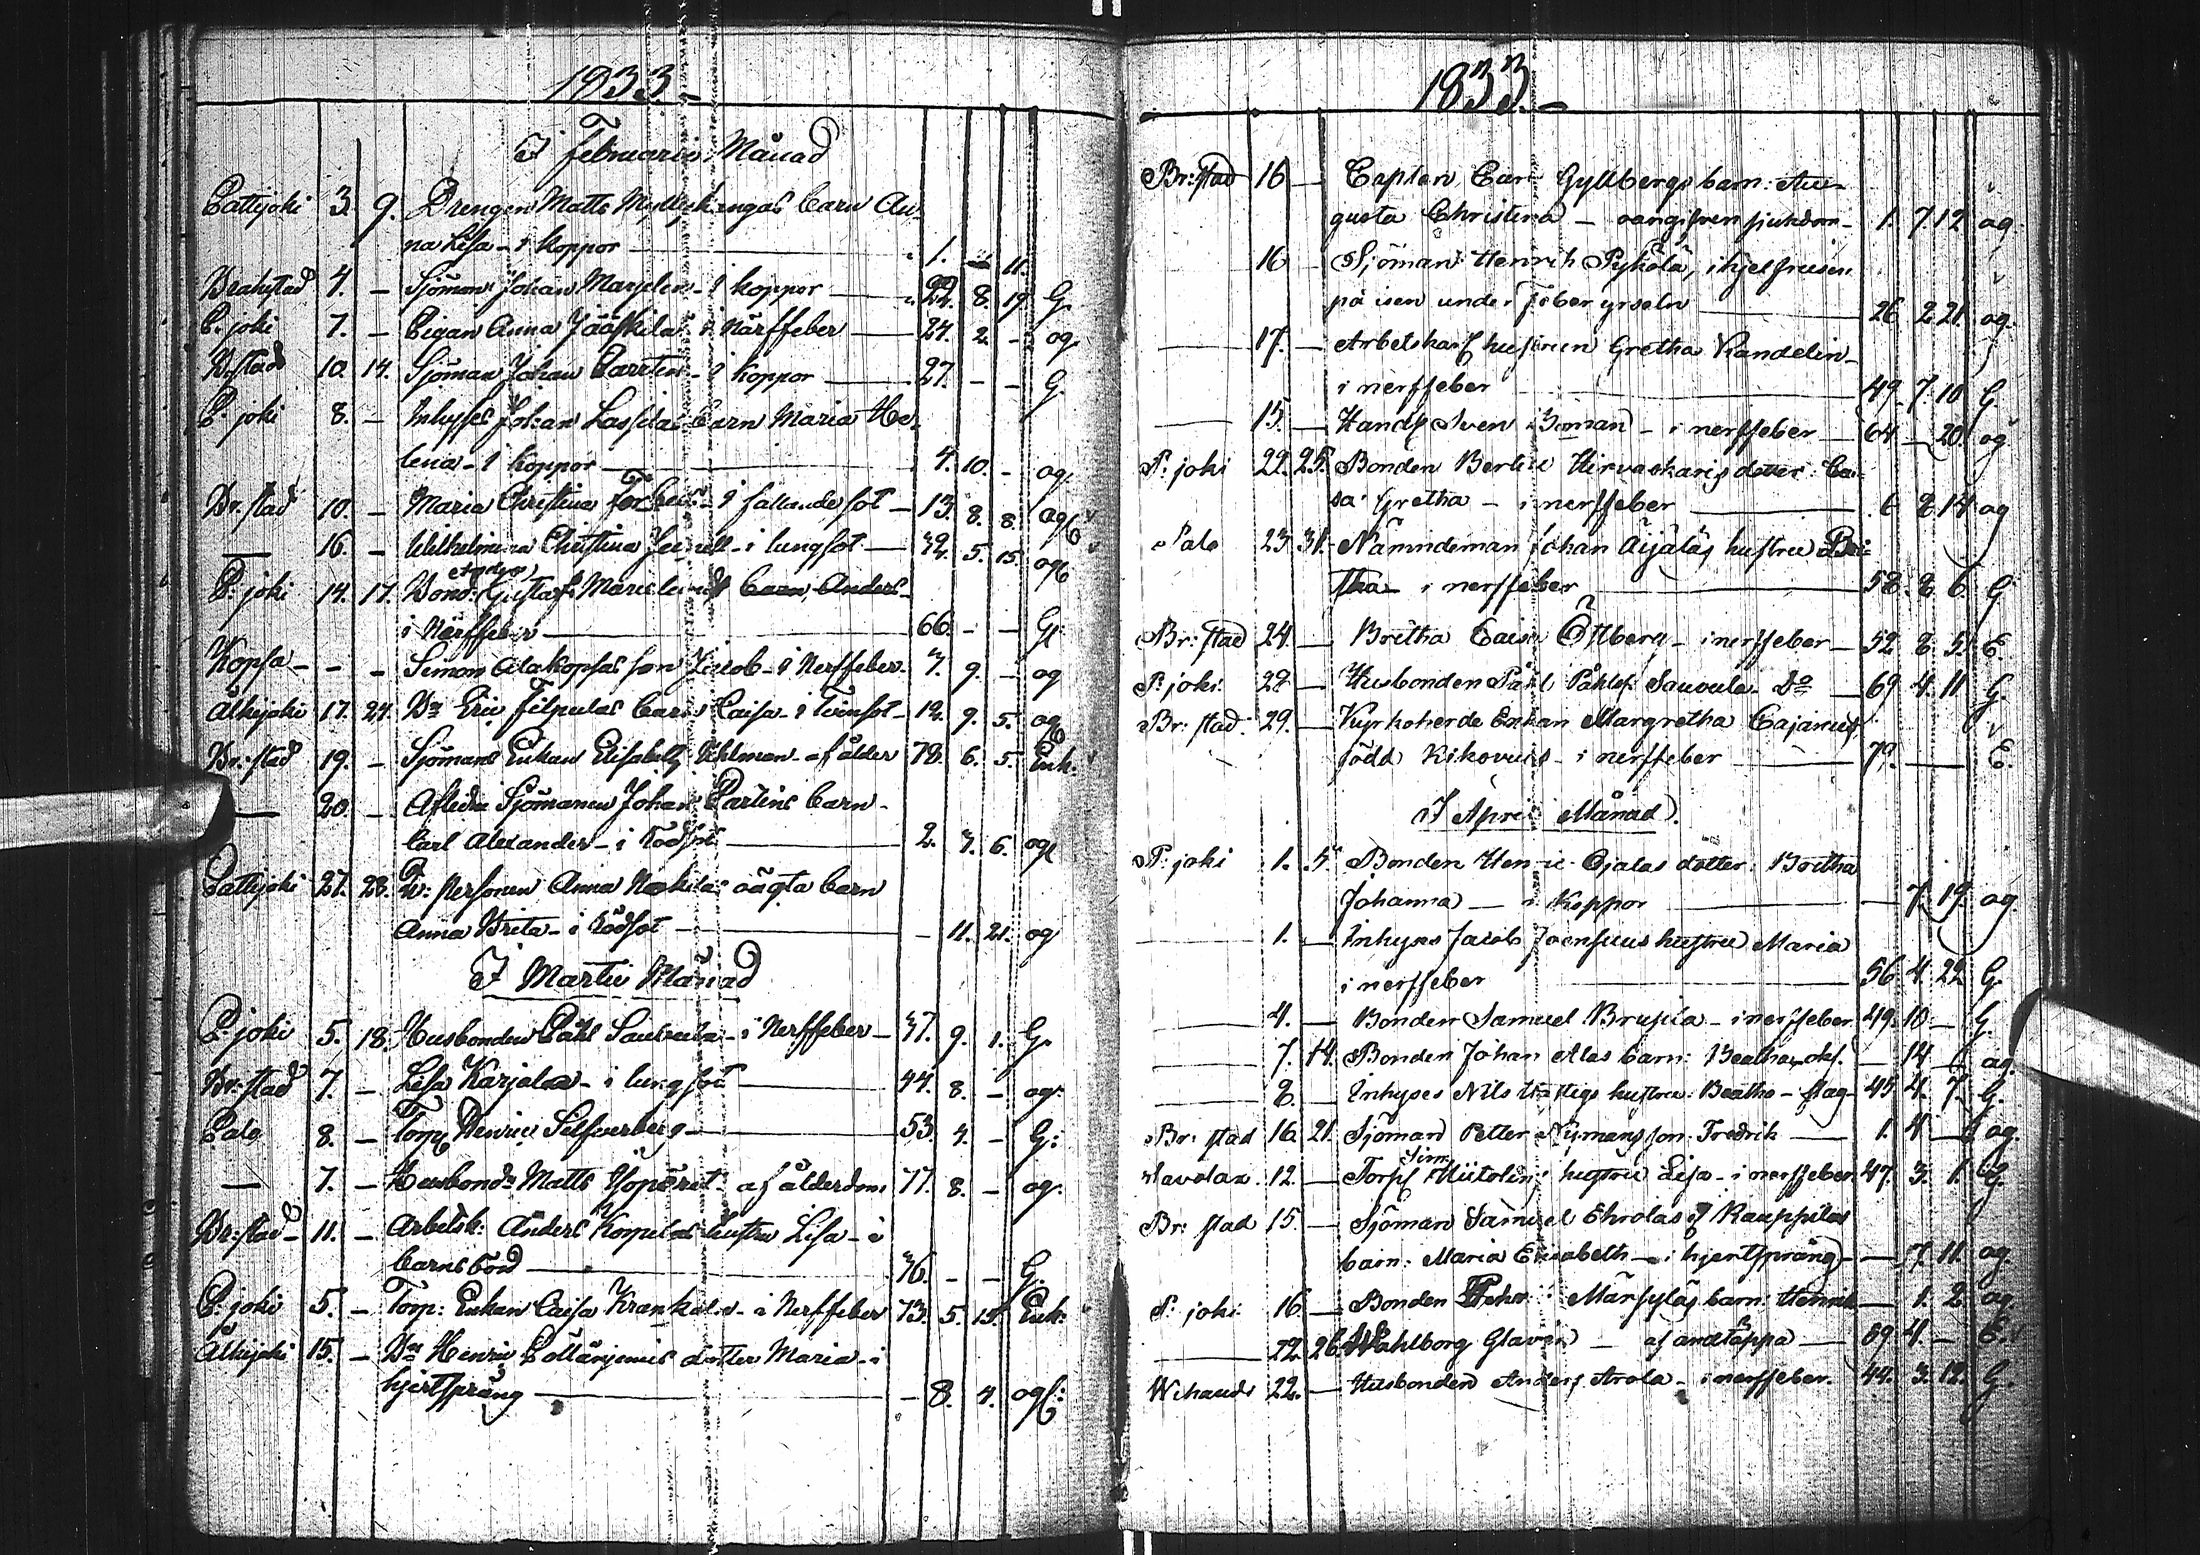 1833.
I Februarii Månad
Pattijoki 3. 9. Drengen Matts Myllykangas barn An-
na Lisa - i koppor 1. - 11.
Brahestad 4. - Sjöman Johan - i koppor 22. 8. 19 G.
P. joki 7. - Pigan Anna Jääskilä i närffeber 24. 2. - og.
Br.stad 10. 14. Sjöman Johan - i koppor 27. - - G.
P. joki 8. - Inhyses Johan Lassilas barn Maria He-
lena - i koppor 4. 10. - og.
Br. stad 10. - Maria Christina - i fallandesot - 13. 8. 8. og
— 16. - Wilhelmina Christina - i lungsot 5. 15. og
P. joki 14. 17. Bond: Gustaf Anders
i Närffeber 66. - - G.
Kopsa - - - Simon Alakopsas son Jacob - i Nerffeber. 7. 9. - og
Alhijoki 17. 24. Dr. Eric Filpulas barn Caisa - i 12. 9. 5. og
Br: stad 19. - Sjömans Enkan Elisabeth Uhlman - af ålder 78. 6. 5. Enk.
— 20 - Aflidne Sjömannen Johan barn
Carl Alexander - i Rödsot 2. 3. 6. og
Pattijoki 27. 28. Qv: Personen Anna oägta barn
Anna Brita - i Rödsot - 11. 21. og
I Martii Månad
P. joki 5. 18. Husbonden Påhl Sauvula - i Nerffeber - 37. 9. 1. G.
Br: stad 7. - Lisa Karjala - i lungsot 44. 8. - og.
Palo 8. - Torp. Henric Silfverberg 53. 4. - G:
— 7. - Husbond: Matts - af ålderdom 77. 8. - og.
Br: stad - 11. - Arbetsk: Anders Korpelas hustru Lisa - i
barnsbörd 36. - - G.
P: joki 5. - Torp: Enkan Caisa - i Nerffeber 73. 5. 15. Enk:
Alhijoki 15. - Dr. Henric dotter Maria - i
hjertspräng - 8. 4. og:
1833.
Br: stad 16 - Capten Carl Gyllbergs barn: Au-
gusta Christina - oangifven sjukdom - 1. 7. 12 og.
16 - Sjöman Henrik Pykölä, ihjelfrusen
på isen under feber yrseln 26 2. 21. og.
— 17. - Arbetskarl hustrun Gretha Kandelin -
i nerffeber 49. 7. 10 G.
— 15. - Handl. Sven Boman - i nerffeber 64 - 20. og
P. joki 22. 25. Bonden Bertil Hirvaskaris dotter Cai-
sa Gretha - i nerffeber 6 8 14 og
Palo 23. 31. Nämndeman Johan Äijäläs hustru Bri-
tha - i nerffeber 58. 8. 6. G
Br: stad 24. - Britha Caisa Östberg - i nerffeber - 52 8. 5. E.
P. joki. 28. - Husbonden Påhl Påhls. Sauvula D:o - 69 4. 11 G.
Br: stad. 29. - Kyrkoherde Enkan Margretha Cajanus
född - i nerffeber 79. E.
I April Månad.
P: joki 1. 5. Bonden Henric Ojalas dotter: Britha
Johanna - i koppor - 7. 19. og.
— 1. - Inhyses Jacob Joensuus hustru Maria
i nerffeber 56. 4. 22 G.
— 4. - Bonden Samuel - i nerffeber 49. 10 - G.
— 7. 14. Bonden Johan Alas barn: Beatha - 14 og.
— 8. - Inhyses Nils hustru: Beatha - slag - 45. 4. 7. G.
Br: stad 16. 21. Sjöman Petter Nymans son: Fredrik 1. 4 - og.
Savolax. 12. - Torp. Sim. hustru Lisa - i nerffeber. 47. 3. 1. G.
Br: stad 15. - Sjöman Samuel Kauppilas
barn: Maria Elisabeth - i hjertspräng - 7. 11. og.
P. joki 16. - Bonden barn: Henrik - 1. 2. og
— 22. 26. Wahlborg - af andtäppa - 69 4. - E.
Wihandi 22. - Husbonden Anders Arola - i nerffeber. 44. 3. 12. G.